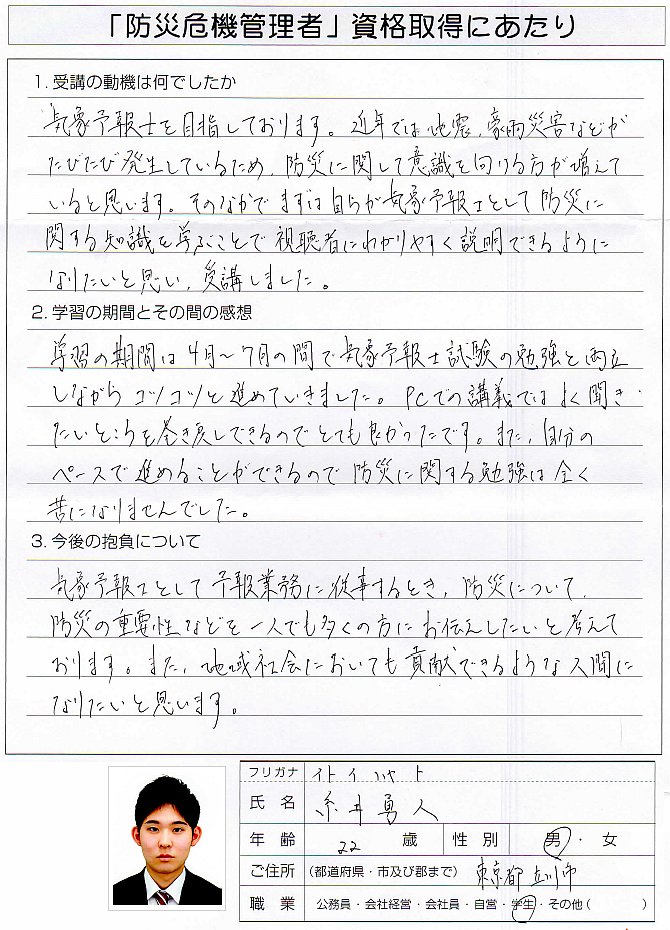 「防災危機管理者」資格取得にあたり
1. 受講の動機は何でしたか
気象予報士を目指しております。近年では地震、豪雨災害などが
たびたび発生しているため、防災に関して意識を向ける方が増えて
いると思います。そのなかでまずは自らが気象予報士として防災に
関する知識を学ぶことで視聴者にわかりやすく説明できるように
なりたいと思い、受講しました。
2. 学習の期間とその間の感想
学習の期間は4月〜7月の間で気象予報士試験の勉強と両立
しながらコツコツと進めていきました。PCでの講義ではよく聞き
たいところを巻き戻しできるのでとても良かったです。また、自分の
ペースで進めることができるので防災に関する勉強は全く
苦になりませんでした。
3. 今後の抱負について
気象予報士として予報業務に従事するとき、防災について、
防災の重要性などを一人でも多くの方にお伝えしたいと考えて
おります。また、地域社会においても貢献できるような人間に
なりたいと思います。
フリガナ イトイ ハヤト
氏名 糸井勇人
年齢 22 歳 性別 男・女
ご住所 (都道府県・市及び郡まで) 東京都立川市
職業 公務員・会社経営・会社員・自営・学生・その他( )